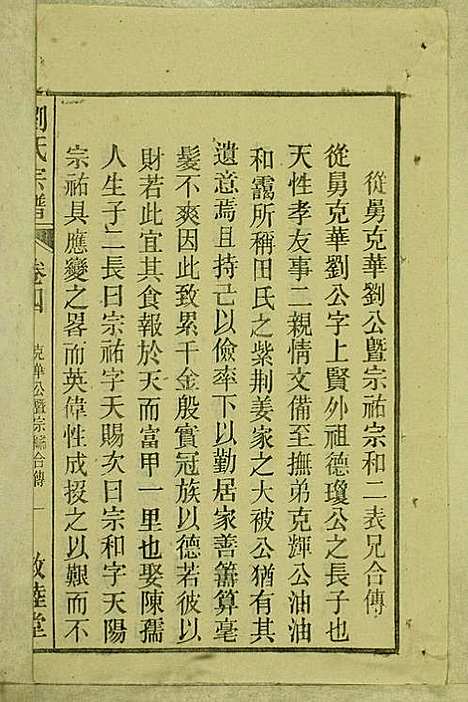 從舅克華劉公暨宗祐宗和二表兄合傳
從舅克華劉公字上賢外祖德瓊公之長子也
天性孝友事二親情文備至撫弟克輝公油油
和靄所稱田氏之紫荆姜家之大被公猶有其
遺意焉且持己以儉率下以勤居家善籌算毫
髮不爽因此致累千金殷實冠族以德若彼以
財若此宜其食報於天而富甲一里也娶陳孺
人生子二長曰宗祐字天賜次曰宗和字天陽
宗祐具應變之畧而英偉性成授之以艱而不
劉氏宗譜
卷四
克華公暨宗祐合傳
一
敦睦堂